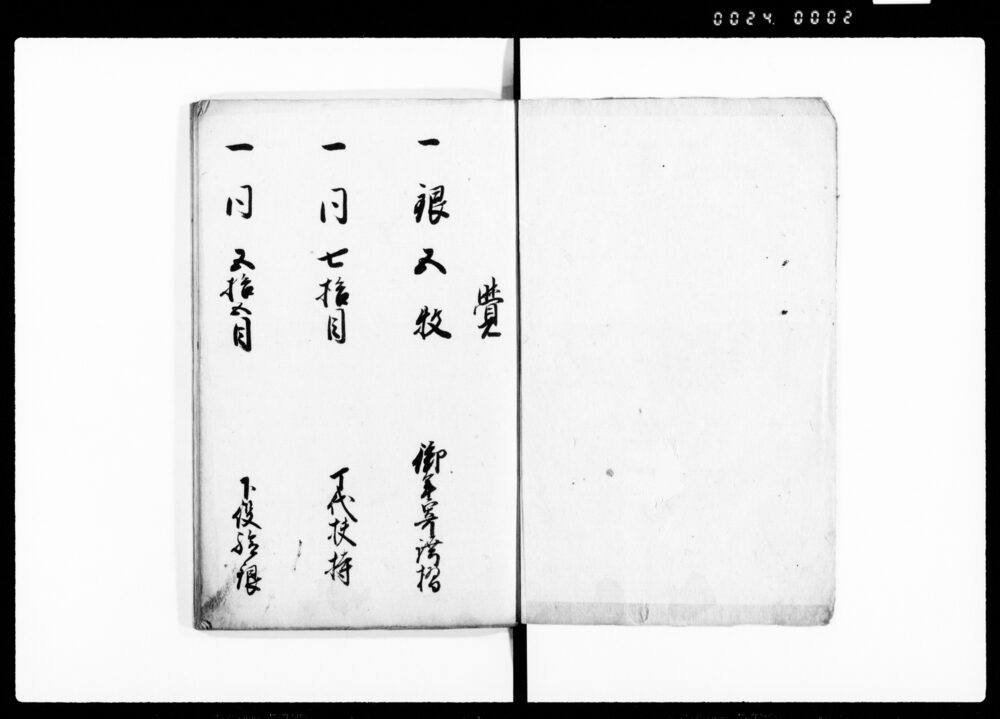 0024. 0002
覺
一 銀五枚 御年寄
一 同七拾目 丁代扶持
一 同五拾五目 下役給銀